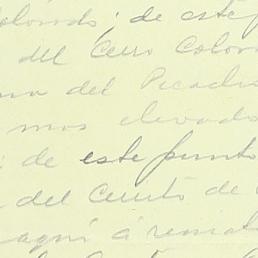 olorado; de este
del Cerro Color
del Picacho
mas elevado
de este punto
del Cerrito de
aquí á remat